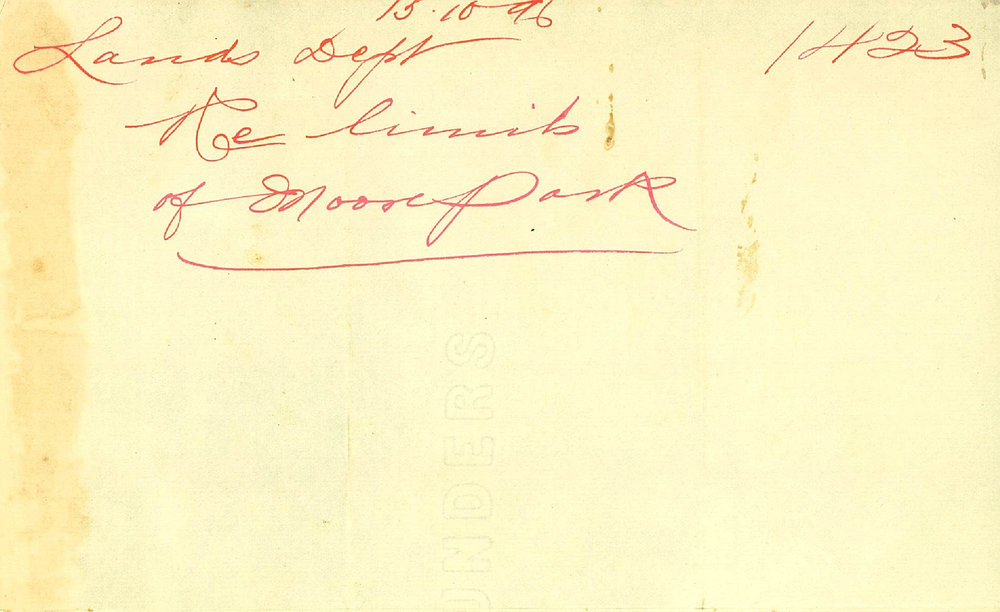 15.10.96
Lands Dept 1423
Re limits
of Moore Park
UNDERS